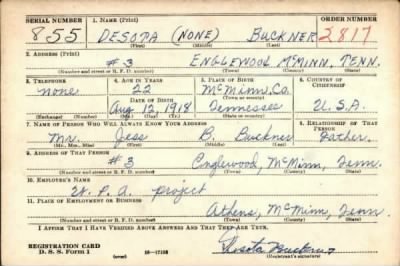 SERIAL NUMBER 1. NAME (Print) ORDER NUMBER
855 DESOTA (NONE) BUCKNER 2817
(First) (Middle) (Last)
2. ADDRESS (Print)
#3 ENGLEWOOD McMINN, TENN.
(Number and street or R. F. D. number) (Town) (County) (State)
3. TELEPHONE 4. AGE IN YEARS 5. PLACE OF BIRTH 6. COUNTRY OF CITIZENSHIP
none 22 McMinn, Co.
DATE OF BIRTH
Aug 12, 1918 Tennessee U.S.A.
(Exchange) (Number) (Mo.) (Day) (Yr.) (State or country)
7. NAME OF PERSON WHO WILL ALWAYS KNOW YOUR ADDRESS 8. RELATIONSHIP OF THAT PERSON
Mr. Jess B. Buckner Father.
(Mr., Mrs., Miss) (First) (Middle) (Last)
9. ADDRESS OF THAT PERSON
#3 Englewood, McMinn, Tenn.
(Number and street or R. F. D. number) (Town) (County) (State)
10. EMPLOYER'S NAME
W. P. A. project
11. PLACE OF EMPLOYMENT OR BUSINESS
Athens, McMinn, Tenn.
(Number and street or R. F. D. number) (Town) (County) (State)
I AFFIRM THAT I HAVE VERIFIED ABOVE ANSWERS AND THAT THEY ARE TRUE.
REGISTRATION CARD
D. S. S. Form 1 (over) 16-17105 Desota Buckner
(Registrant's signature)